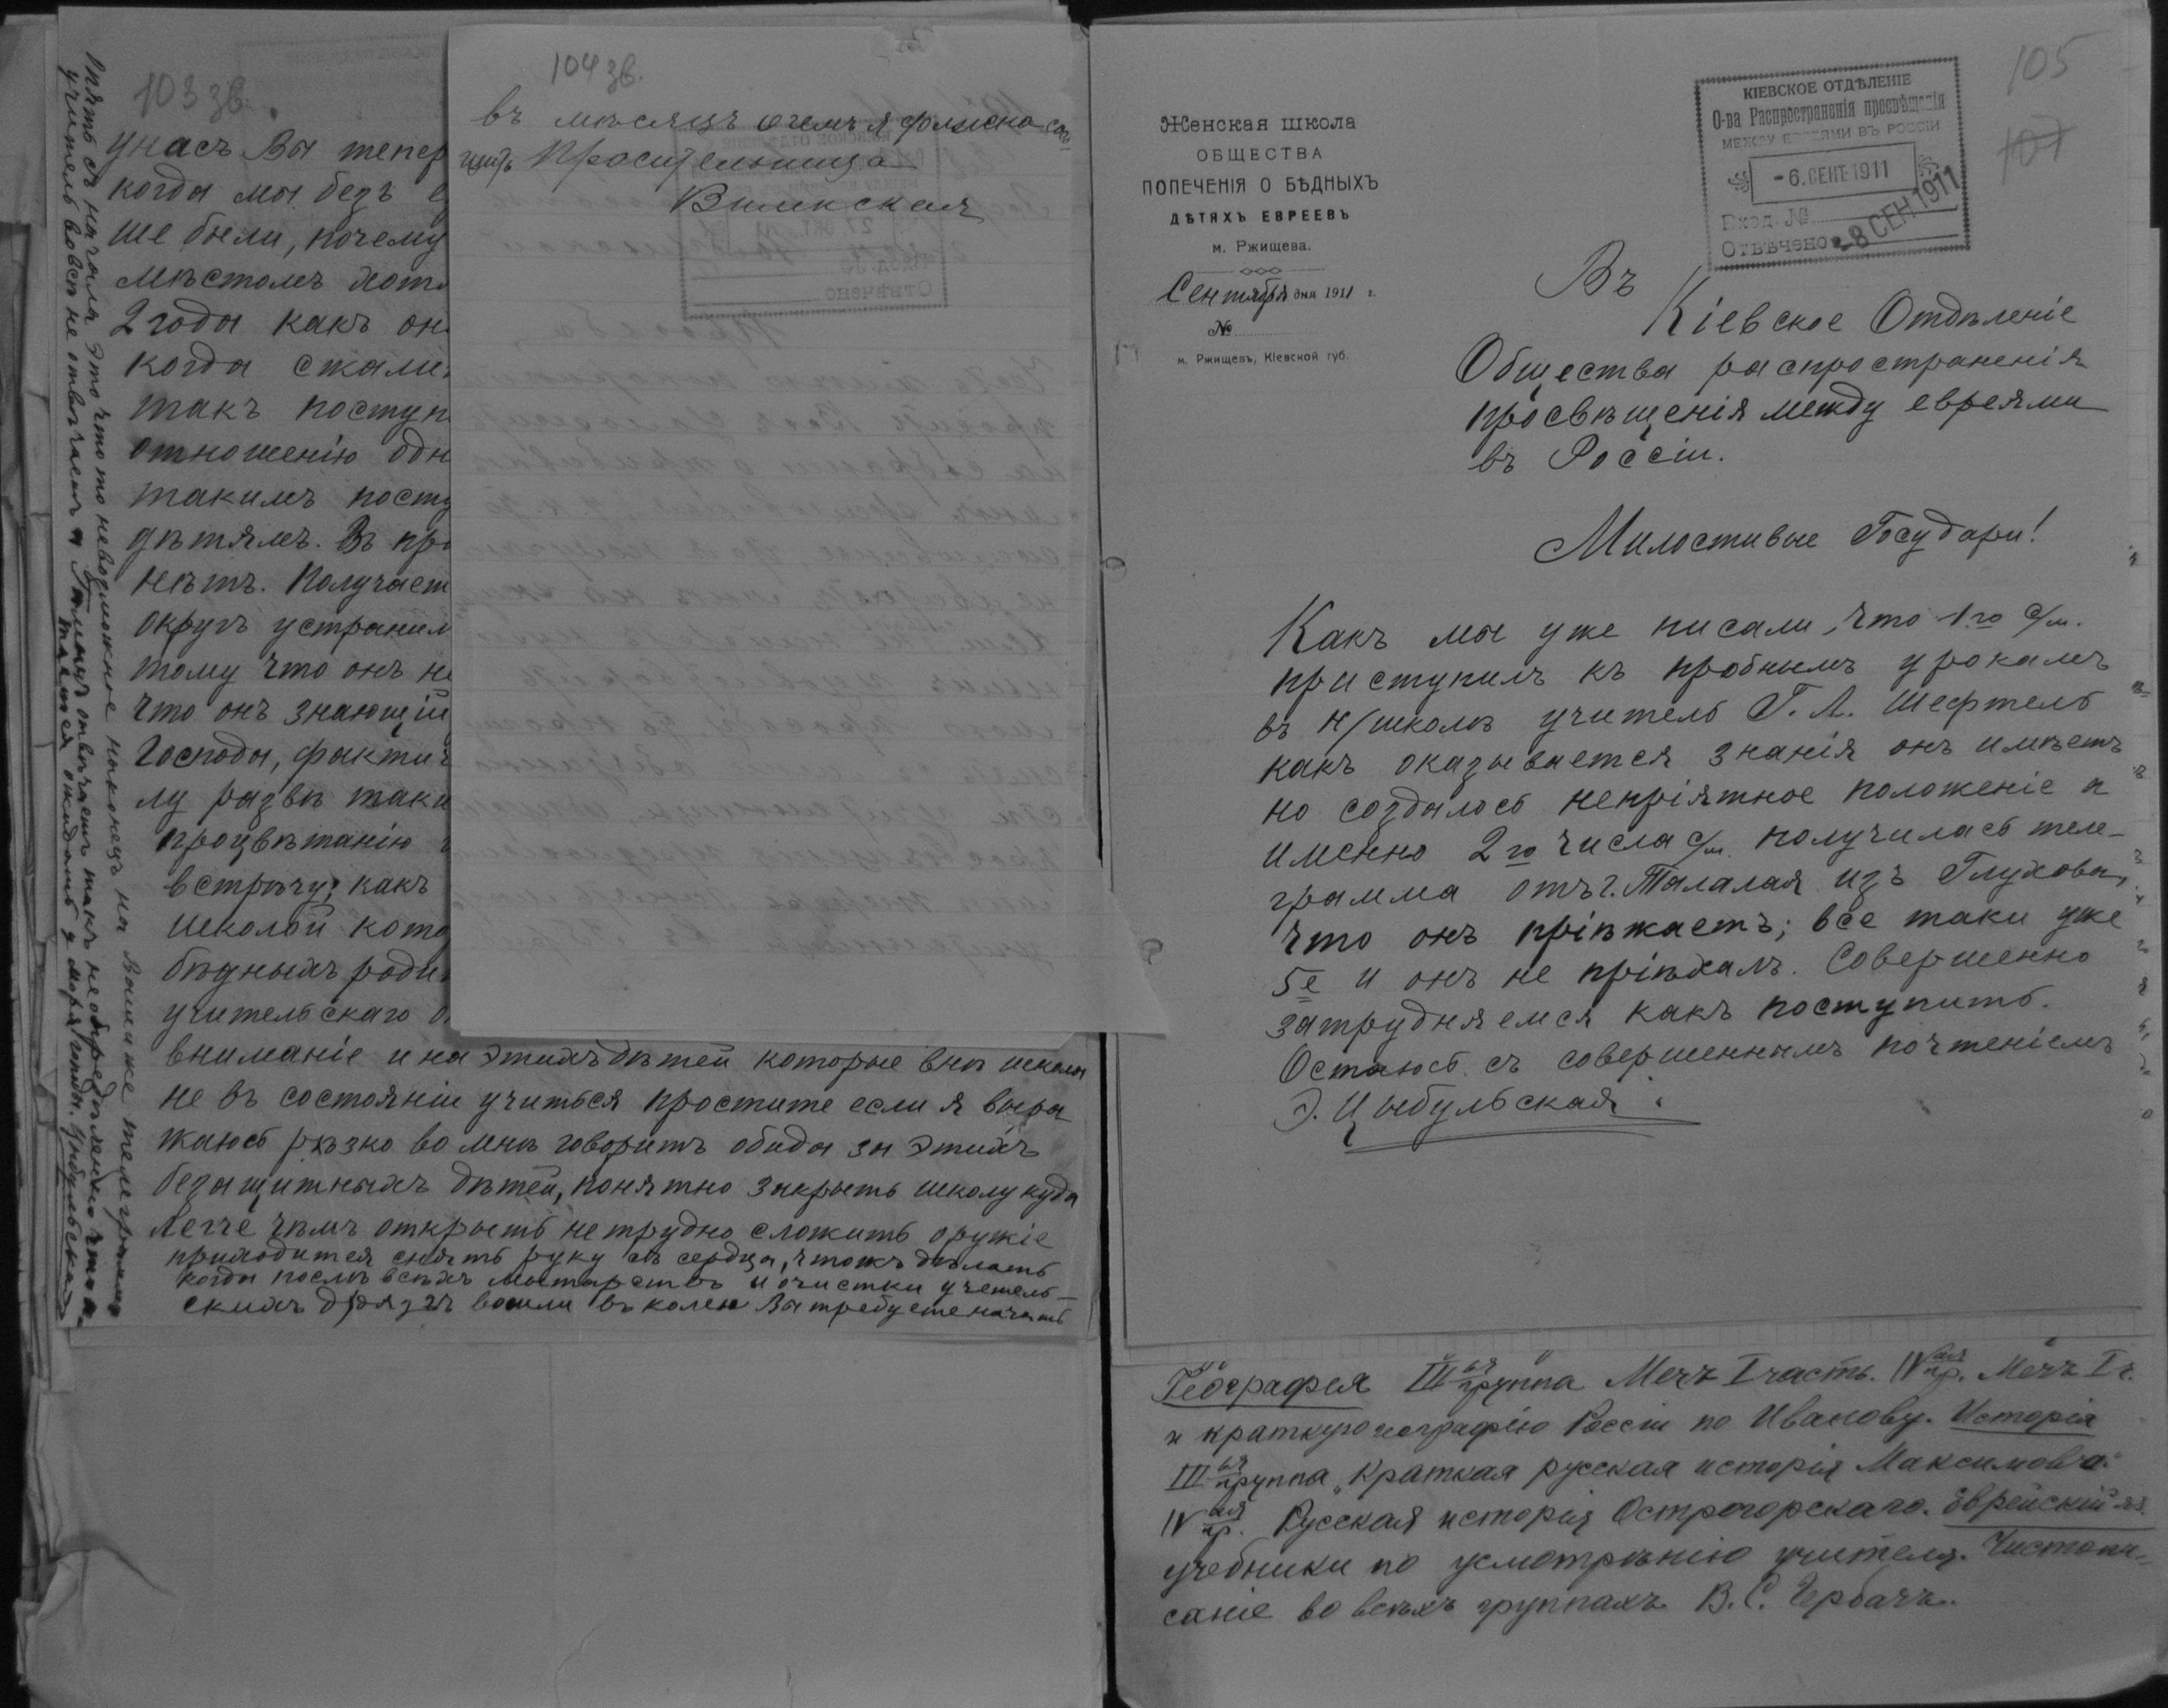 103 зв.
у насъ Вы тепер
когда мы безъ
ше были, почему
мѣстомъ хоть
2 года какъ он
когда сжали
такъ поступ
отношенію одн
такимъ посту
дѣтямъ. Въ пр
нѣтъ. Получает
округъ устранил
тому что онъ не
что онъ знающій
Господа, фактич
лу развѣ таки
процвѣтанію
встрѣчу; какъ
школой кото
бѣдныхъ роди
учительскаго
вниманіе и на этихъ дѣтей которые внѣ школы
не въ состояніи учиться простите если я выра
жаюсь рѣзко во мнѣ говоритъ обида за этихъ
безащитныхъ дѣтей, понятно закрыть школу куда
легче чѣмъ открыть не трудно сложить оружіе
приходится снять руку съ сердца, чтожъ дѣлать
когда послѣ всѣхъ мытарствъ и очистки учетель-
скихъ дрязгъ вошли въ колею Вы требуете начать
опять съ начала это что то невозможное наконецъ на Ваши же телеграммы
учитель вовсе не отвѣчаетъ а Талалай отвѣчаетъ такъ неопредѣленно что о-
тается ожидать у моря погоды. Цыбульская
104 зв.
въ мѣсяцъ о чемъ я должна соо
щить Просительница
Вилинская
105
107
Женская школа
ОБЩЕСТВА
ПОПЕЧЕНІЯ О БѢДНЫХЪ
ДѢТЯХЪ ЕВРЕЕВЪ
м. Ржищева.
Сентября дня 1911 г.
№
м. Ржищевъ, Кіевской губ.
КІЕВСКОЕ ОТДѢЛЕНІЕ
О-ва Распространенія просвѣщенія
МЕЖДУ ЕВРЕЯМИ ВЪ РОССІИ
-6. СЕНТ. 1911
Вход. №
Отвѣчено -8 СЕН 1911
Въ
Кіевское Отдѣленіе
Общества распространенія
просвѣщенія между евреями
въ Россіи.
Милостивые Государи!
Какъ мы уже писали, что 1го с/м.
приступилъ къ пробнымъ урокамъ
въ н/школѣ учитель Г. Л. Шефтель
какъ оказывается знанія онъ имѣетъ
но создалось непріятное положеніе а
именно 2го числа с/м. получилась теле-
грамма отъ г. Талалая изъ Глухова,
что онъ пріѣжаетъ; все таки уже
5е и онъ не пріѣхалъ. Совершенно
затрудняемся какъ поступить.
Остаюсь съ совершеннымъ почтеніемъ
Э. Цыбульская.
Географія IIIья группа Мечъ I часть. IVая гр. Мечъ I ч.
и краткую географію Россіи по Иванову. Исторія
IIIья группа „Краткая русская исторія Максимова“
IVая гр. Русская исторія Острогорскаго. Еврейскій яз.
учебники по усмотрѣнію учителя. Чистопи-
саніе во всѣхъ группахъ В. С. Гербачъ.